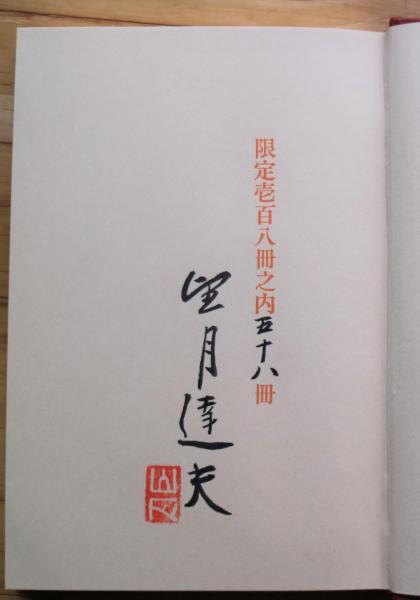 限定壱百八冊之内五十八冊
望月達夫